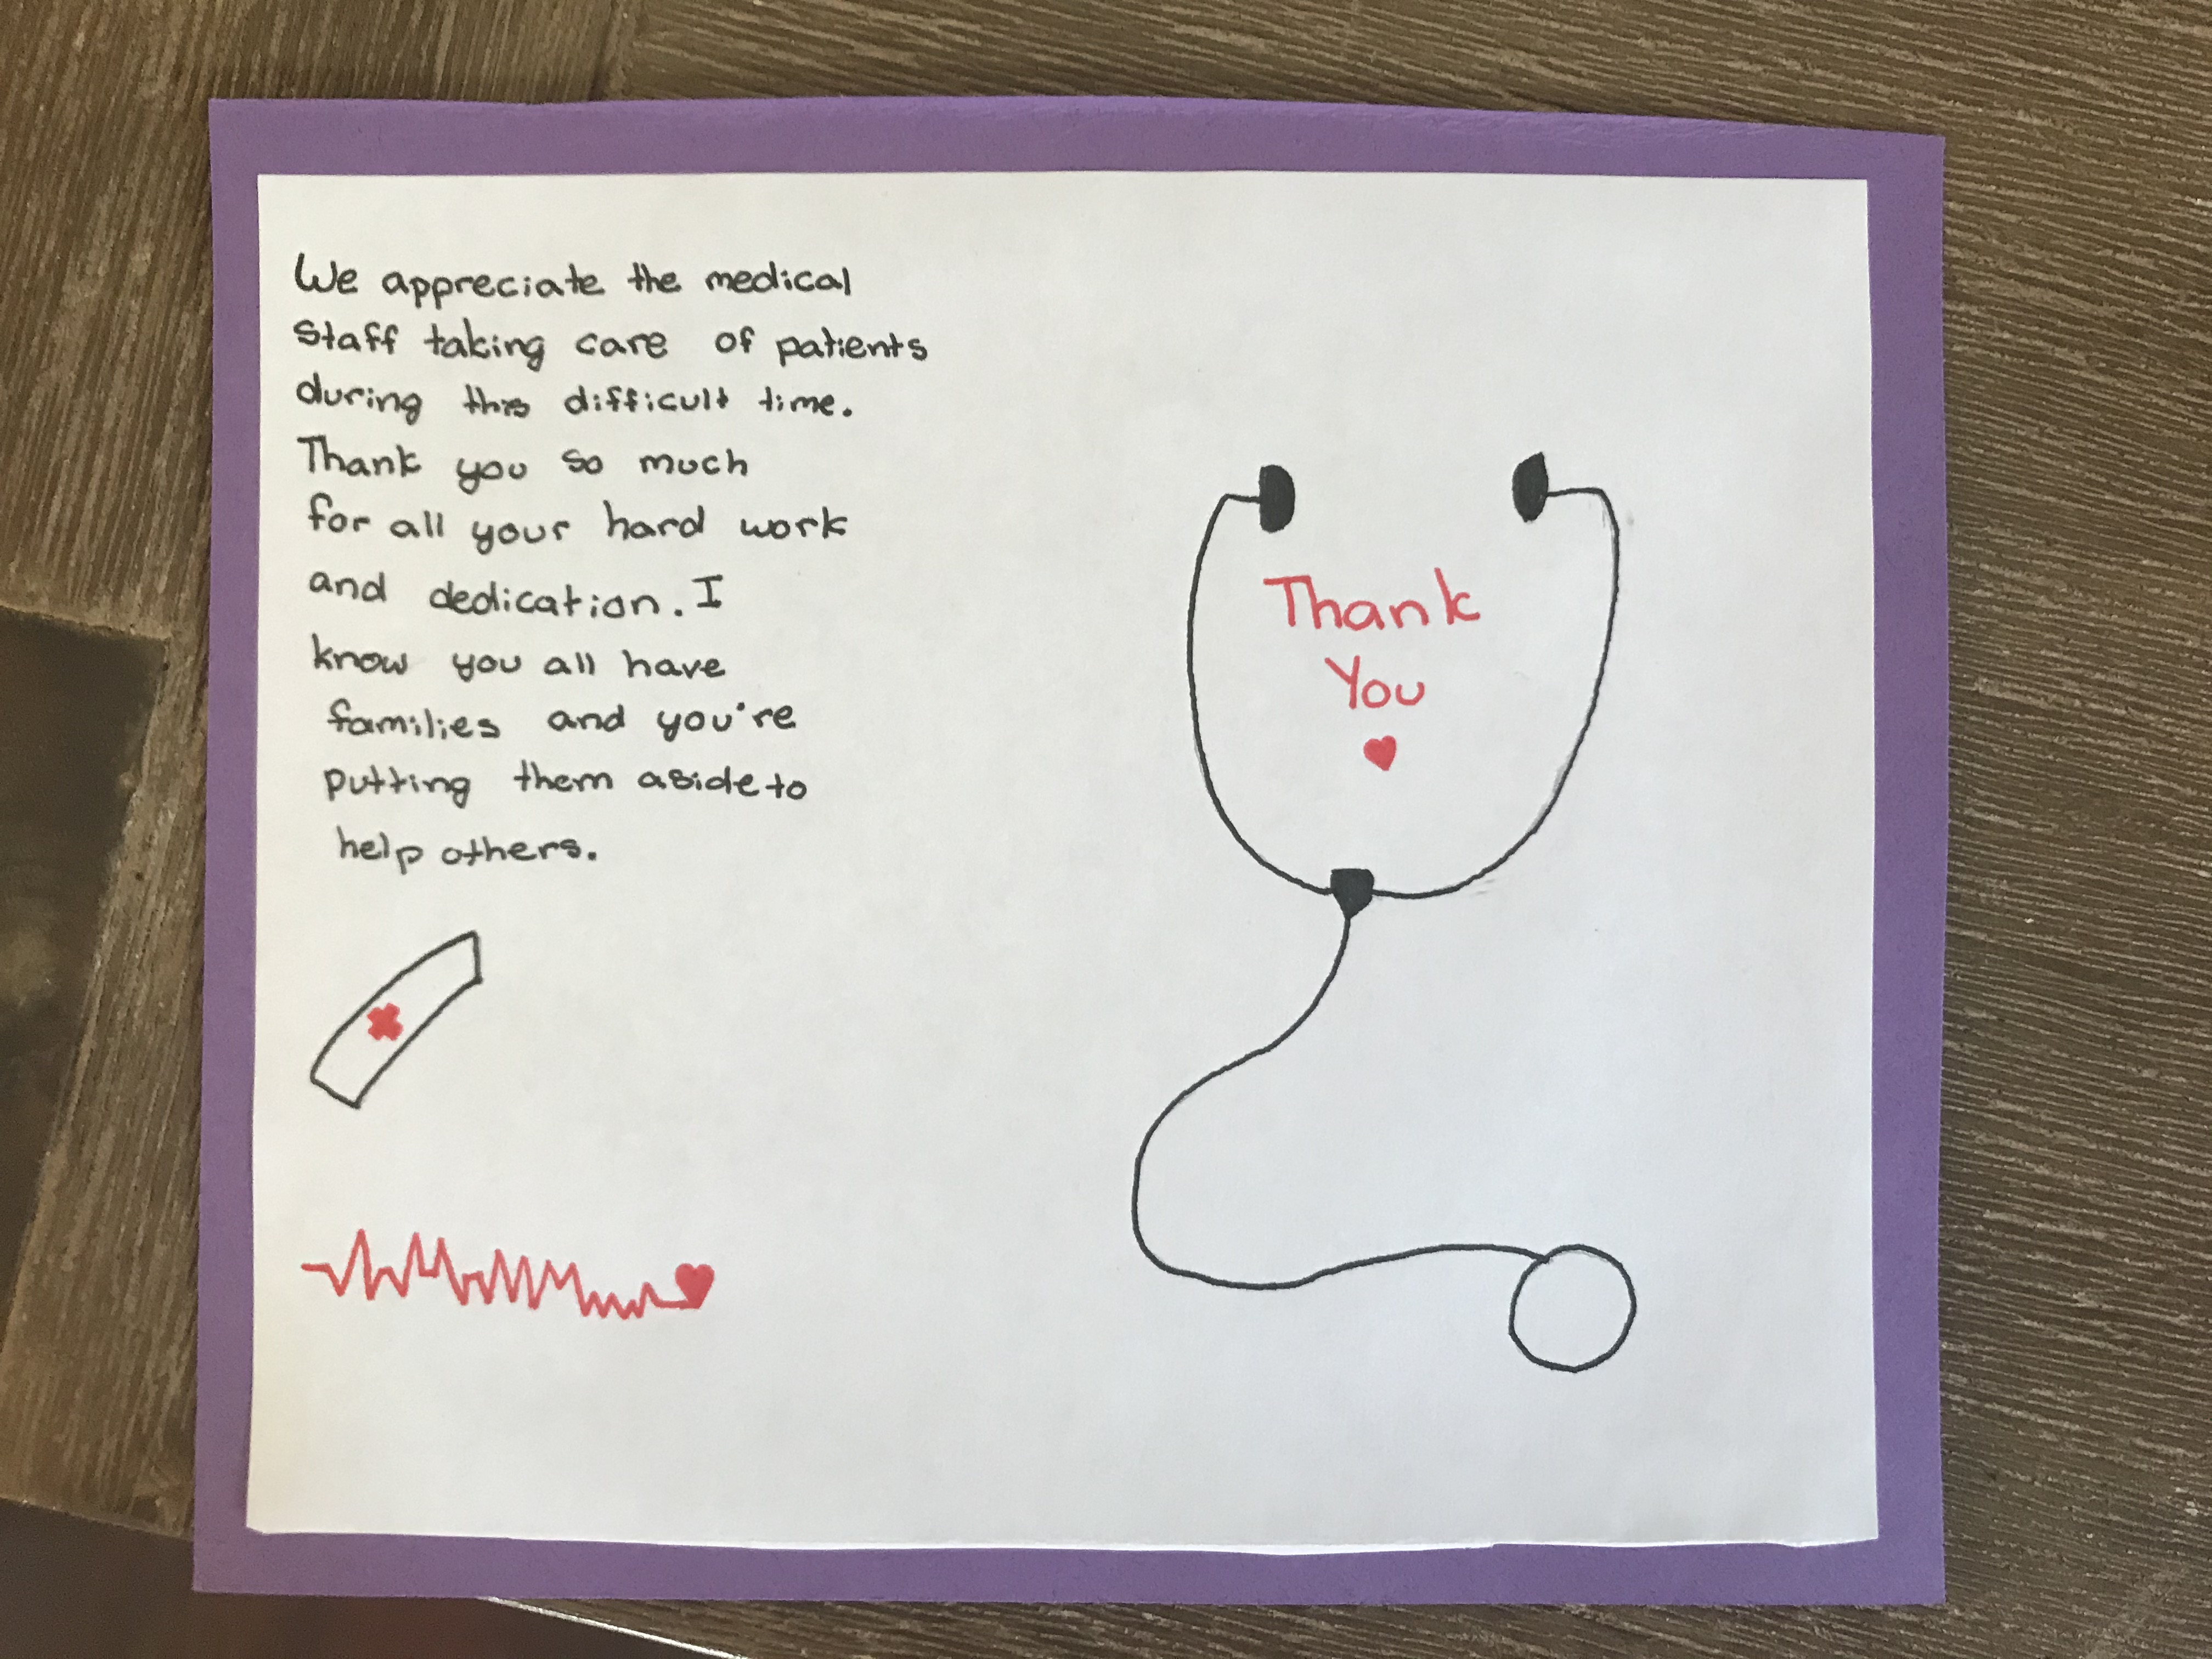 We appreciate the medical
staff taking care of patients
during this difficult time.
Thank you so much
for all your hard work
and dedication. I
know you all have
families and you're
putting them aside to
help others.
Thank
You